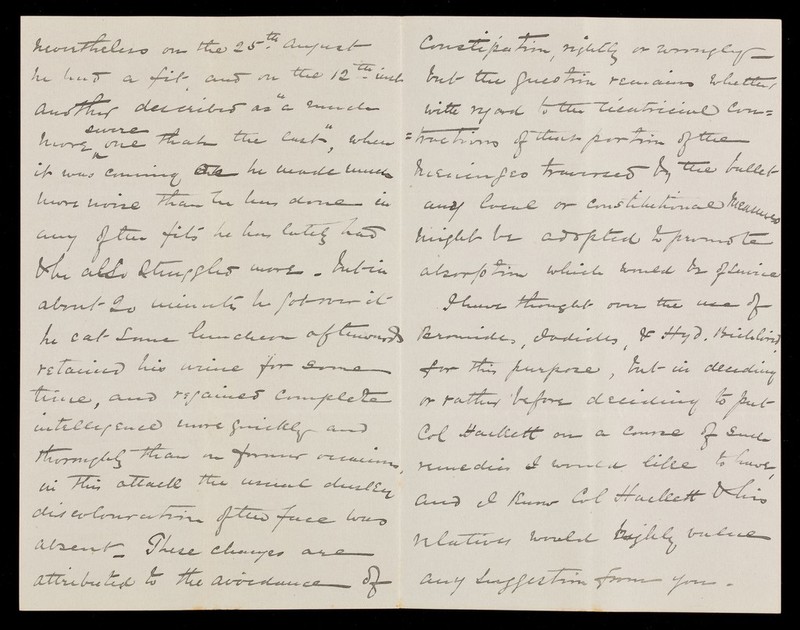 nevertheless on the 25th August
he had a fit, and on the 12th inst
another described as "a much
more severe one than the last", when
it was coming on he made much
more noise than he has done in
any of the fits he has lately had
& he also struggled more. But in
about 20 minutes he got over it
he eat some luncheon afterwards
retained his urine for some
time, and regained complete
intelligence more quickly and
thoroughly than on former occasions,
in this attack the usual dusky
discolouration of the face was
absent. These changes are
attributed to the avoidance of
Constipation, rightly or wrongly—
but the question remains whether
with regard to the cicatricial con=
=tractions of that portion of the
Meninges traversed by the bullet
any local or constitutional measures
might be adopted to promote
absorption which would be of service
I have thought over the use of
Bromides, Iodides, & Hyd. Bichlorid,
for this purpose, but in deciding
or rather before deciding to put
Col Hackett on a course of such
remedies I would like to have,
and I know Col Hackett & his
relatives would highly value
any suggestion from you.